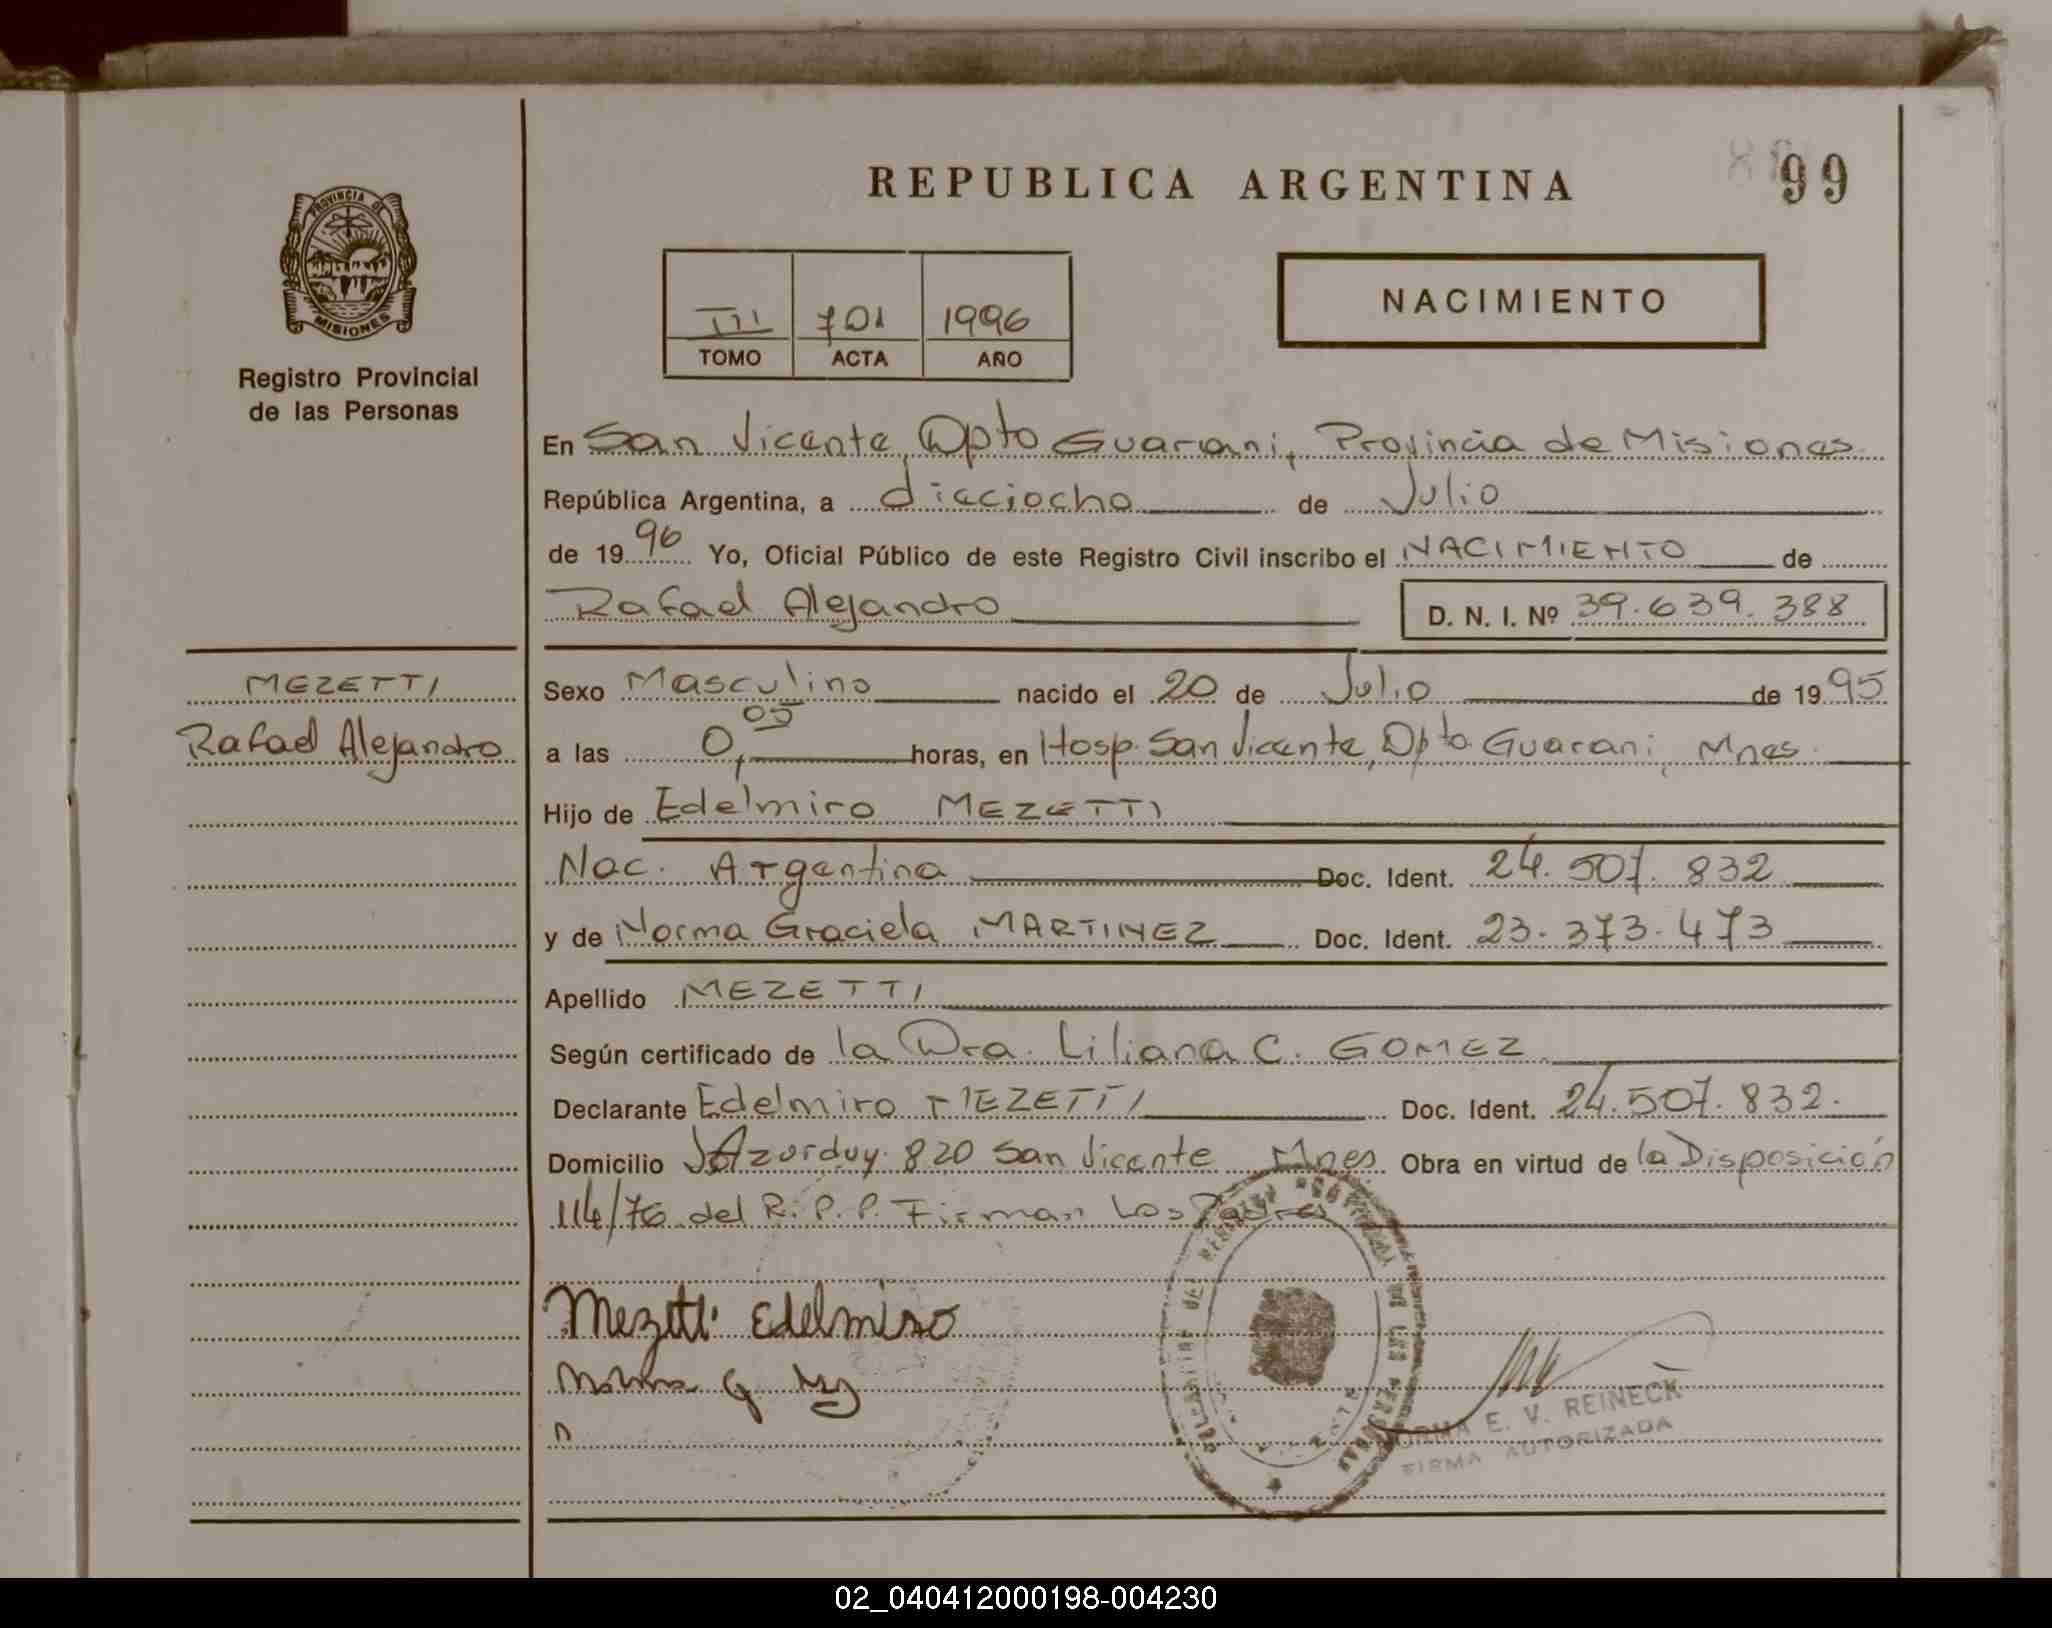 REPUBLICA ARGENTINA
99
PROVINCIA DE
MISIONES
Registro Provincial
de las Personas
III 701 1996
TOMO ACTA AÑO
NACIMIENTO
En San Vicente, Dpto Guarani, Provincia de Misiones
República Argentina, a dieciocho de Julio
de 1996 Yo, Oficial Público de este Registro Civil inscribo el NACIMIENTO de
Rafael Alejandro D. N. I. Nº 39.639.388
MEZETTI
Rafael Alejandro
Sexo Masculino nacido el 20 de Julio de 1995
a las 0,05 horas, en Hosp. San Vicente, Dpto. Guarani, Mnes.
Hijo de Edelmiro MEZETTI
Nac. Argentina Doc. Ident. 24.507.832
y de Norma Graciela MARTINEZ Doc. Ident. 23.373.473
Apellido MEZETTI
Según certificado de la Dra. Liliana C. GOMEZ
Declarante Edelmiro MEZETTI Doc. Ident. 24.507.832.
Domicilio J Azurduy 820 San Vicente Mnes Obra en virtud de la Disposición
114/76 del R.P.P. Firman Los Padres
Mezetti Edelmiro
E. V. REINECK
FIRMA AUTORIZADA
02_040412000198-004230